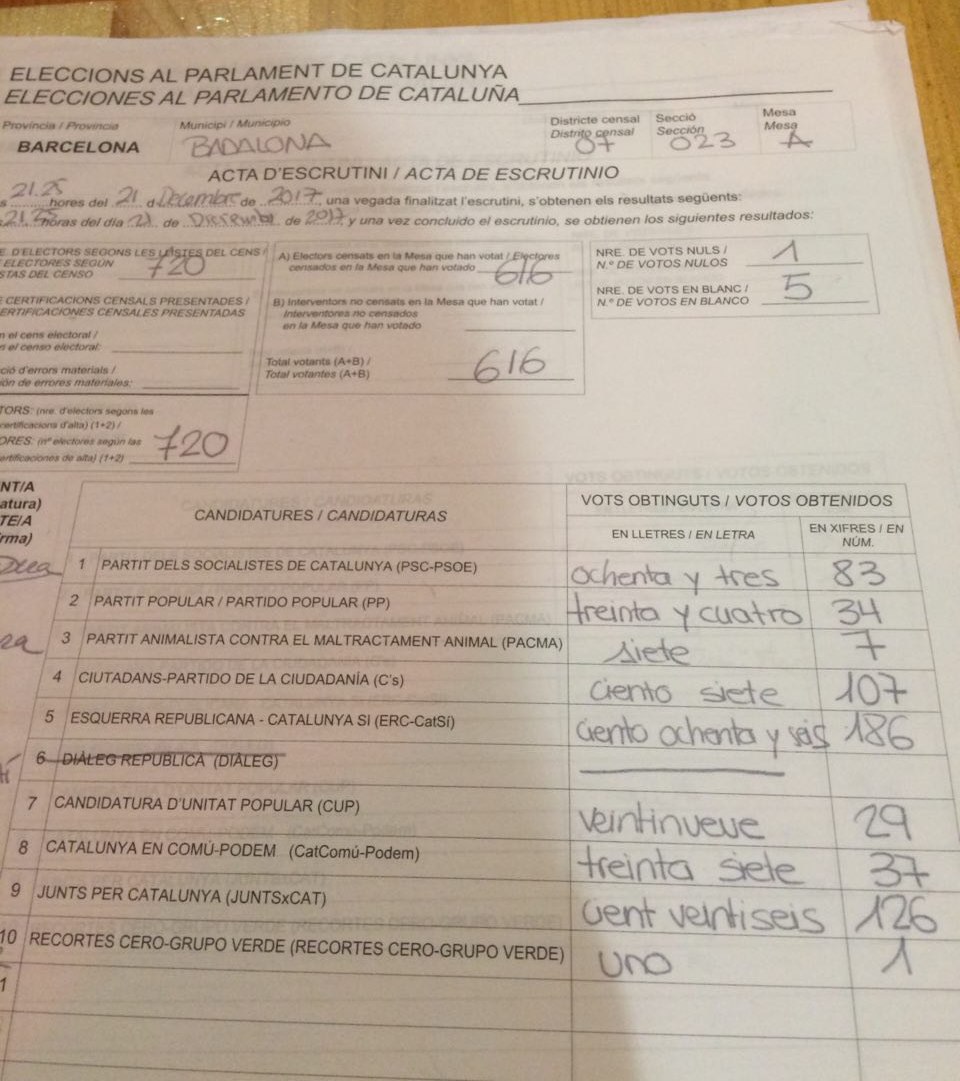 ELECCIONS AL PARLAMENT DE CATALUNYA
ELECCIONES AL PARLAMENTO DE CATALUÑA
Província / Provincia Municipi / Municipio Districte censal Secció Mesa
Distrito censal Sección Mesa
BARCELONA BADALONA 07 023 A
ACTA D'ESCRUTINI / ACTA DE ESCRUTINIO
s 21.25 hores del 21 d Decembre de 2017, una vegada finalitzat l'escrutini, s'obtenen els resultats següents:
21.25 horas del día 21 de de 2017 y una vez concluido el escrutinio, se obtienen los siguientes resultados:
E. D'ELECTORS SEGONS LES LLISTES DEL CENS /
ELECTORES SEGÚN
STAS DEL CENSO 720
E CERTIFICACIONS CENSALS PRESENTADES /
ERTIFICACIONES CENSALES PRESENTADAS
n el cens electoral /
n el censo electoral:
ció d'errors materials /
ión de errores materiales:
TORS: (nre. d'electors segons les
certificacions d'alta) (1+2) /
ORES: (nº electores según las
ertificaciones de alta) (1+2) 720
A) Electors censats en la Mesa que han votat / Electores
censados en la Mesa que han votado 616
B) Interventors no censats en la Mesa que han votat /
Interventores no censados
en la Mesa que han votado
Total votants (A+B) /
Total votantes (A+B) 616
NRE. DE VOTS NULS /
N.º DE VOTOS NULOS 1
NRE. DE VOTS EN BLANC /
N.º DE VOTOS EN BLANCO 5
NT/A
atura)
TE/A
rma)
CANDIDATURES / CANDIDATURAS VOTS OBTINGUTS / VOTOS OBTENIDOS
EN LLETRES / EN LETRA EN XIFRES / EN NÚM.
1 PARTIT DELS SOCIALISTES DE CATALUNYA (PSC-PSOE) ochenta y tres 83
2 PARTIT POPULAR / PARTIDO POPULAR (PP) treinta y cuatro 34
3 PARTIT ANIMALISTA CONTRA EL MALTRACTAMENT ANIMAL (PACMA) siete 7
4 CIUTADANS-PARTIDO DE LA CIUDADANÍA (C's) ciento siete 107
5 ESQUERRA REPUBLICANA - CATALUNYA SI (ERC-CatSí) ciento ochenta y seis 186
6 DIÀLEG REPUBLICÀ (DIÀLEG)
7 CANDIDATURA D'UNITAT POPULAR (CUP) veintinueve 29
8 CATALUNYA EN COMÚ-PODEM (CatComú-Podem) treinta siete 37
9 JUNTS PER CATALUNYA (JUNTSxCAT) cient veintiseis 126
10 RECORTES CERO-GRUPO VERDE (RECORTES CERO-GRUPO VERDE) uno 1
1